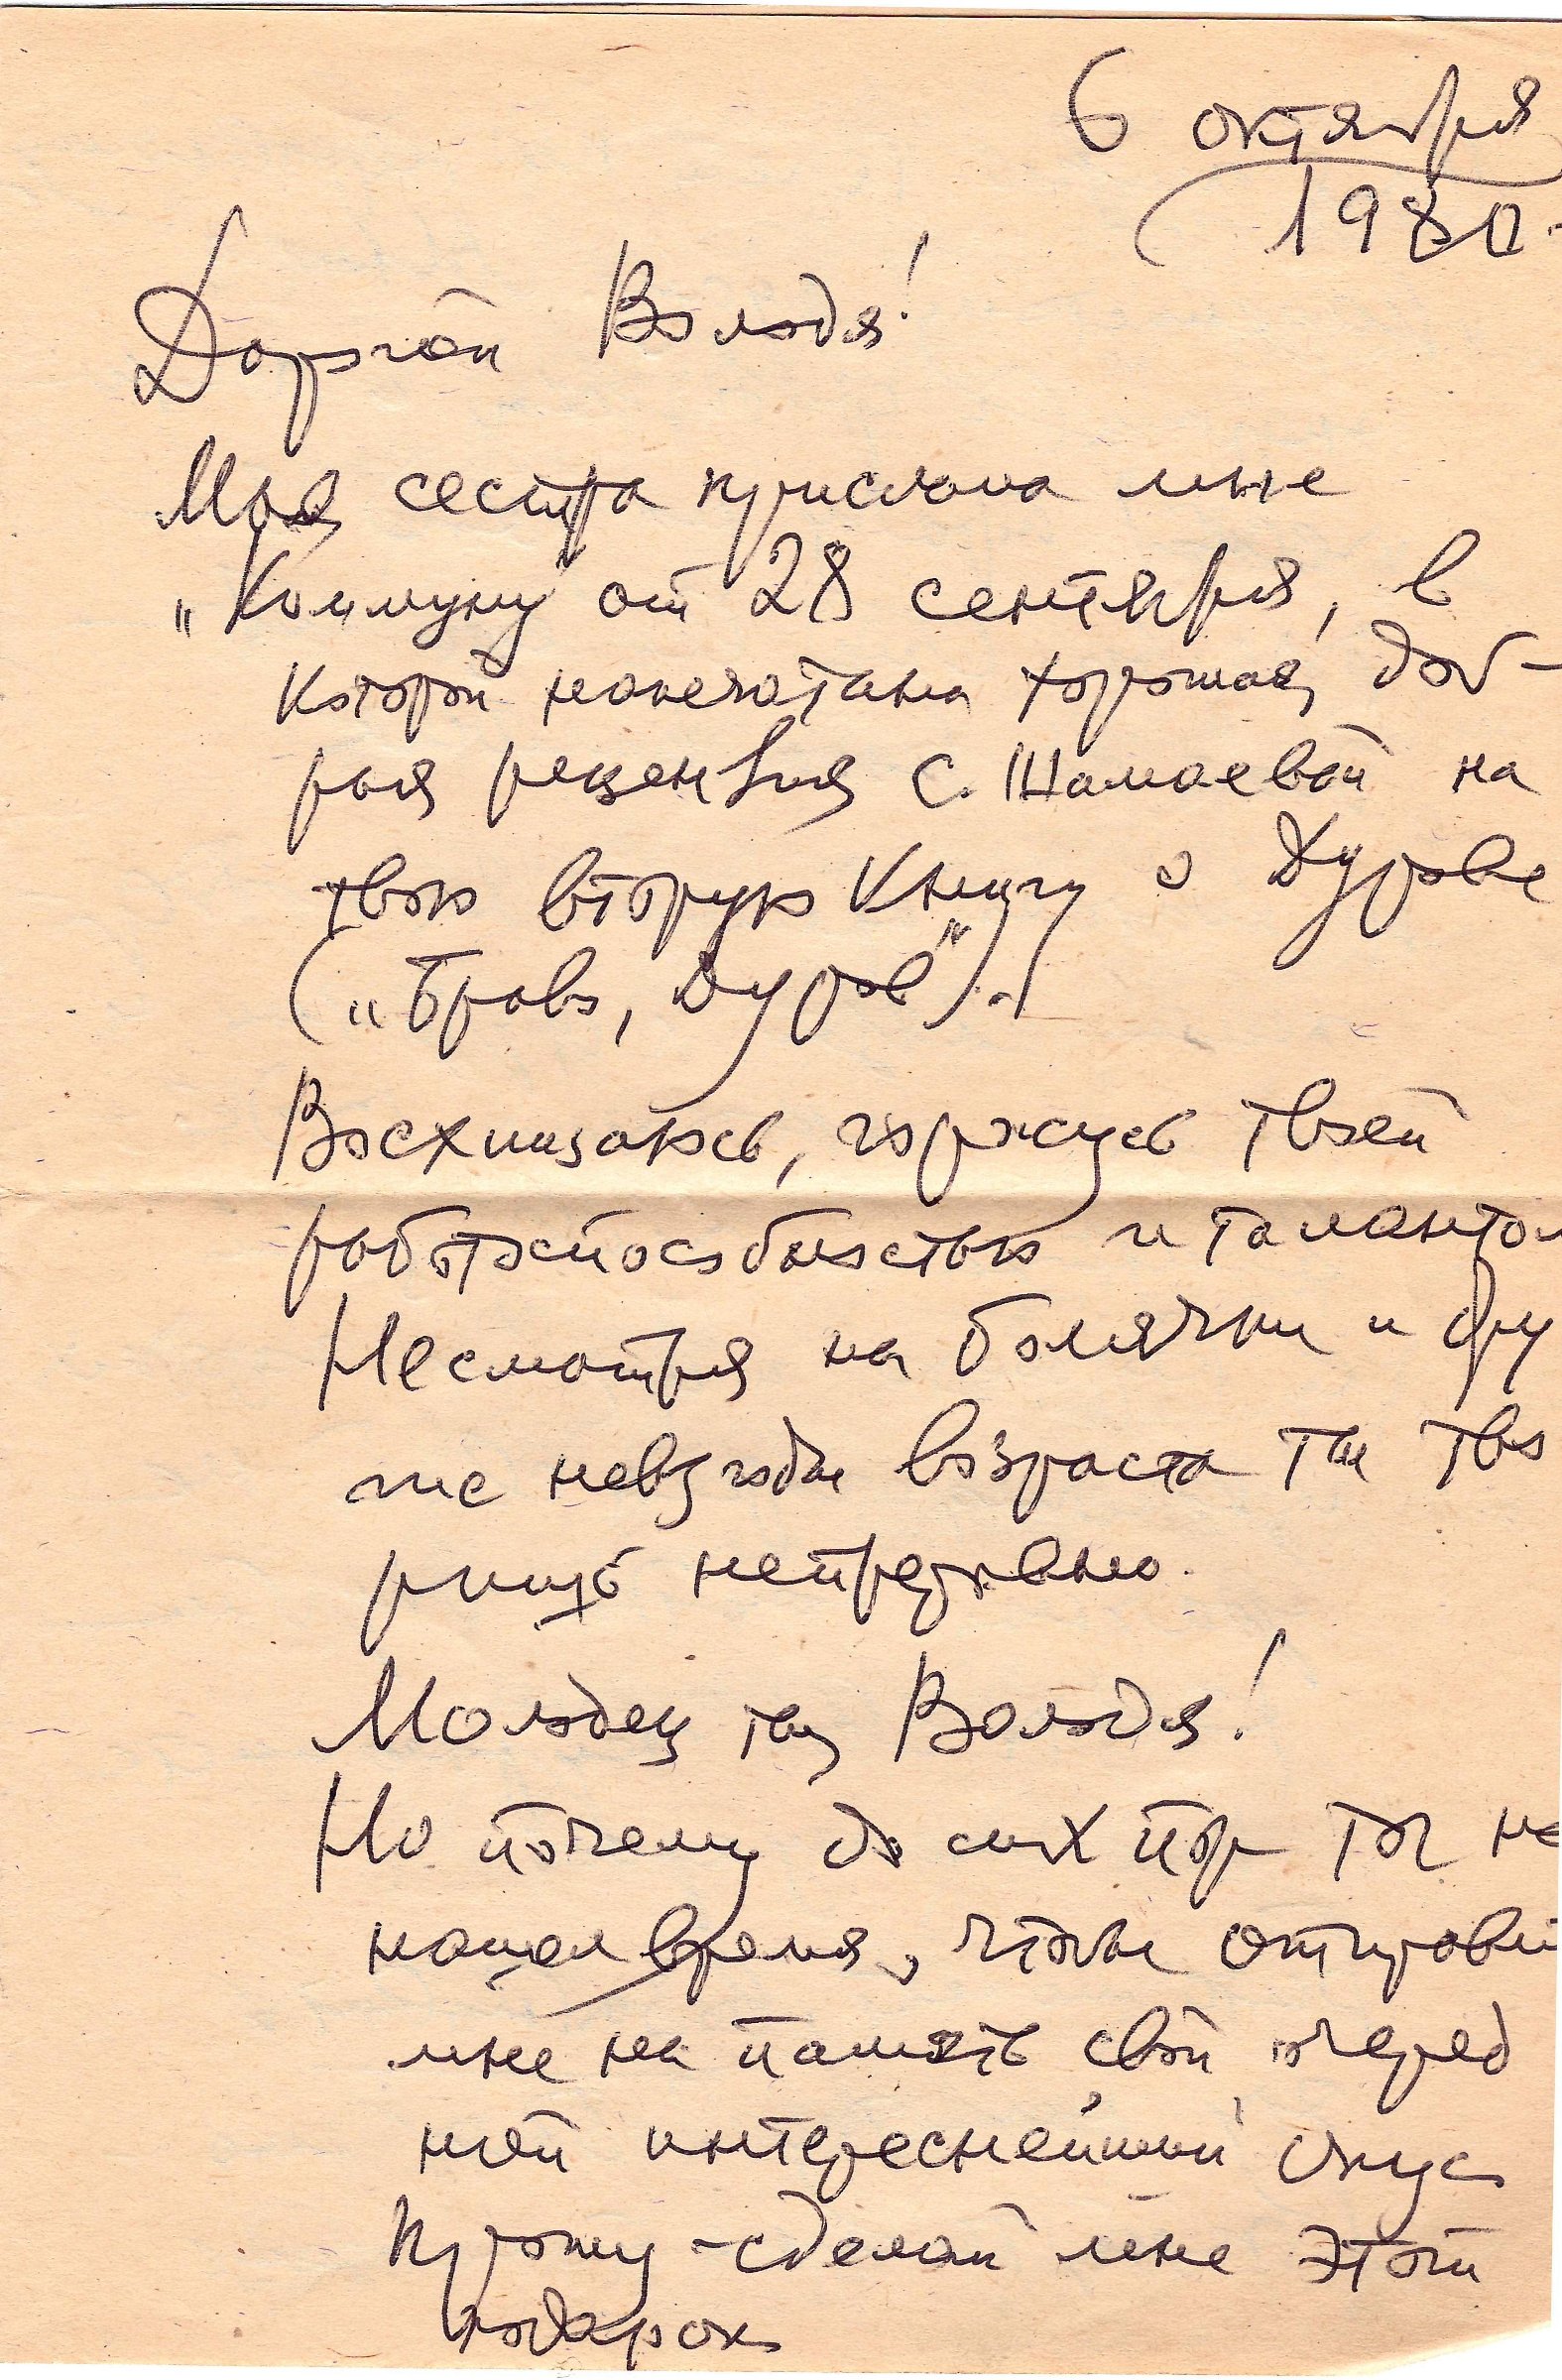 6 октября
1980.
Дорогой Володя!
Моя сестра прислала мне
„Коммуну от 28 сентября, в
которой напечатана хорошая, доб-
рая рецензия С. Шамаевой на
твою вторую книгу о Дурове
(„Браво, Дуров“).
Восхищаюсь, горжусь твоей
работоспособностью и талантом
Несмотря на болячки и дру
гие невзгоды возраста ты тво
ришь непрерывно.
Молодец ты, Володя!
Но почему до сих пор ты не
нашел время, чтобы отправи
мне на память свой очеред
ной интереснейший опус
Прошу - сделай мне этот
подарок